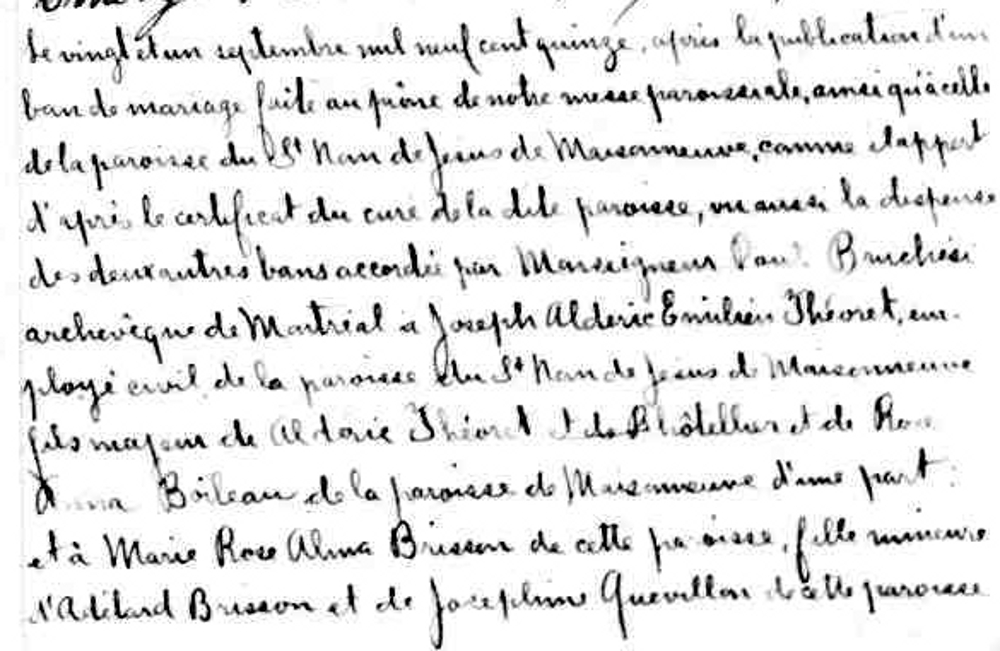 Le vingt et un septembre mil neuf cent quinze, après la publication d'un
ban de mariage faite au prône de notre messe paroissiale, ainsi qu'à celle
de la paroisse du St Nom de Jesus de Maisonneuve, comme il appert
d'après le certificat du curé de la dite paroisse, vu aussi la dispense
des deux autres bans accordée par Monseigneur Paul Bruchési
archevêque de Montréal à Joseph Alderic Emilien Théoret, em-
ployé civil, de la paroisse du St Nom de Jesus de Maisonneuve
fils majeur de Alderic Théoret et de
Anna Boileau de la paroisse de Maisonneuve d'une part;
et à Marie Rose Alma Brisson de cette paroisse, fille mineure
d'Adélard Brisson et de Josephine Quevillon de cette paroisse